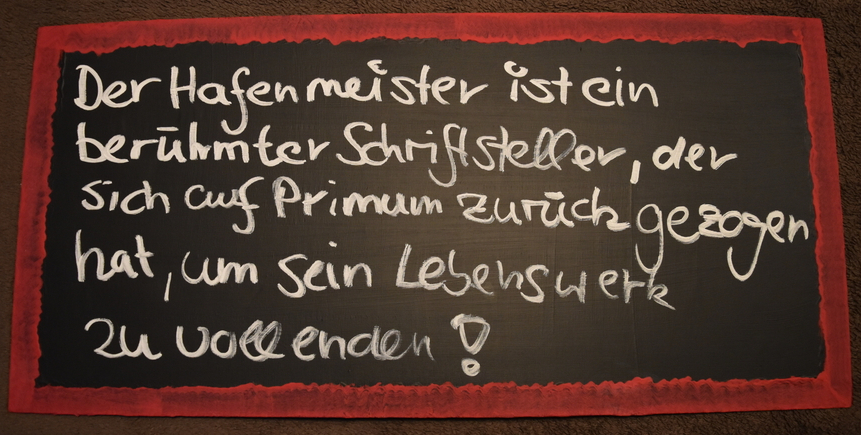 Der Hafenmeister ist ein
berühmter Schriftsteller, der
sich auf Primum zurück gezogen
hat, um sein Lebenswerk
zu vollenden!